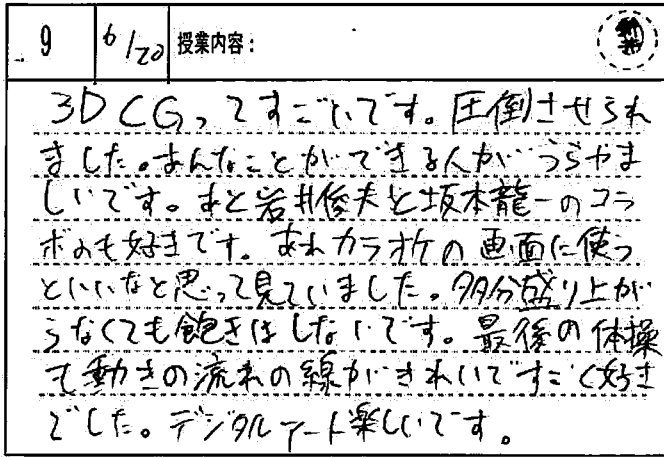 9 6/20 授業内容:
3DCGってすごいです。圧倒させられ
ました。あんなことができる人がうらやま
しいです。あと岩井俊夫と坂本龍一のコラ
ボのも好きです。あれカラオケの画面に使う
といいなと思って見ていました。多分盛り上が
らなくても飽きはしないです。最後の体操
も動きの流れの線がきれいですごく好き
でした。デジタルアート楽しいです。